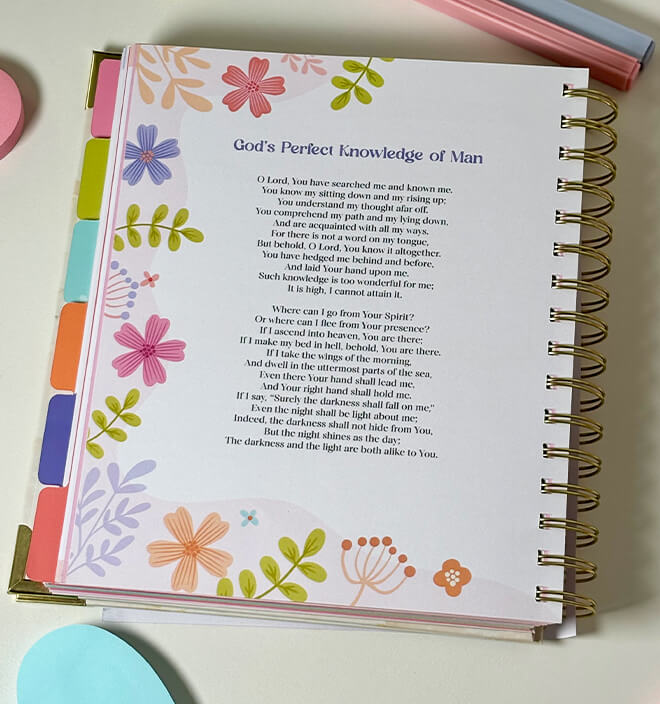 God's Perfect Knowledge of Man
O Lord, You have searched me and known me.
You know my sitting down and my rising up;
You understand my thought afar off.
You comprehend my path and my lying down,
And are acquainted with all my ways.
For there is not a word on my tongue,
But behold, O Lord, You know it altogether.
You have hedged me behind and before,
And laid Your hand upon me.
Such knowledge is too wonderful for me;
It is high, I cannot attain it.
Where can I go from Your Spirit?
Or where can I flee from Your presence?
If I ascend into heaven, You are there;
If I make my bed in hell, behold, You are there.
If I take the wings of the morning,
And dwell in the uttermost parts of the sea,
Even there Your hand shall lead me,
And Your right hand shall hold me.
If I say, "Surely the darkness shall fall on me,"
Even the night shall be light about me;
Indeed, the darkness shall not hide from You,
But the night shines as the day;
The darkness and the light are both alike to You.